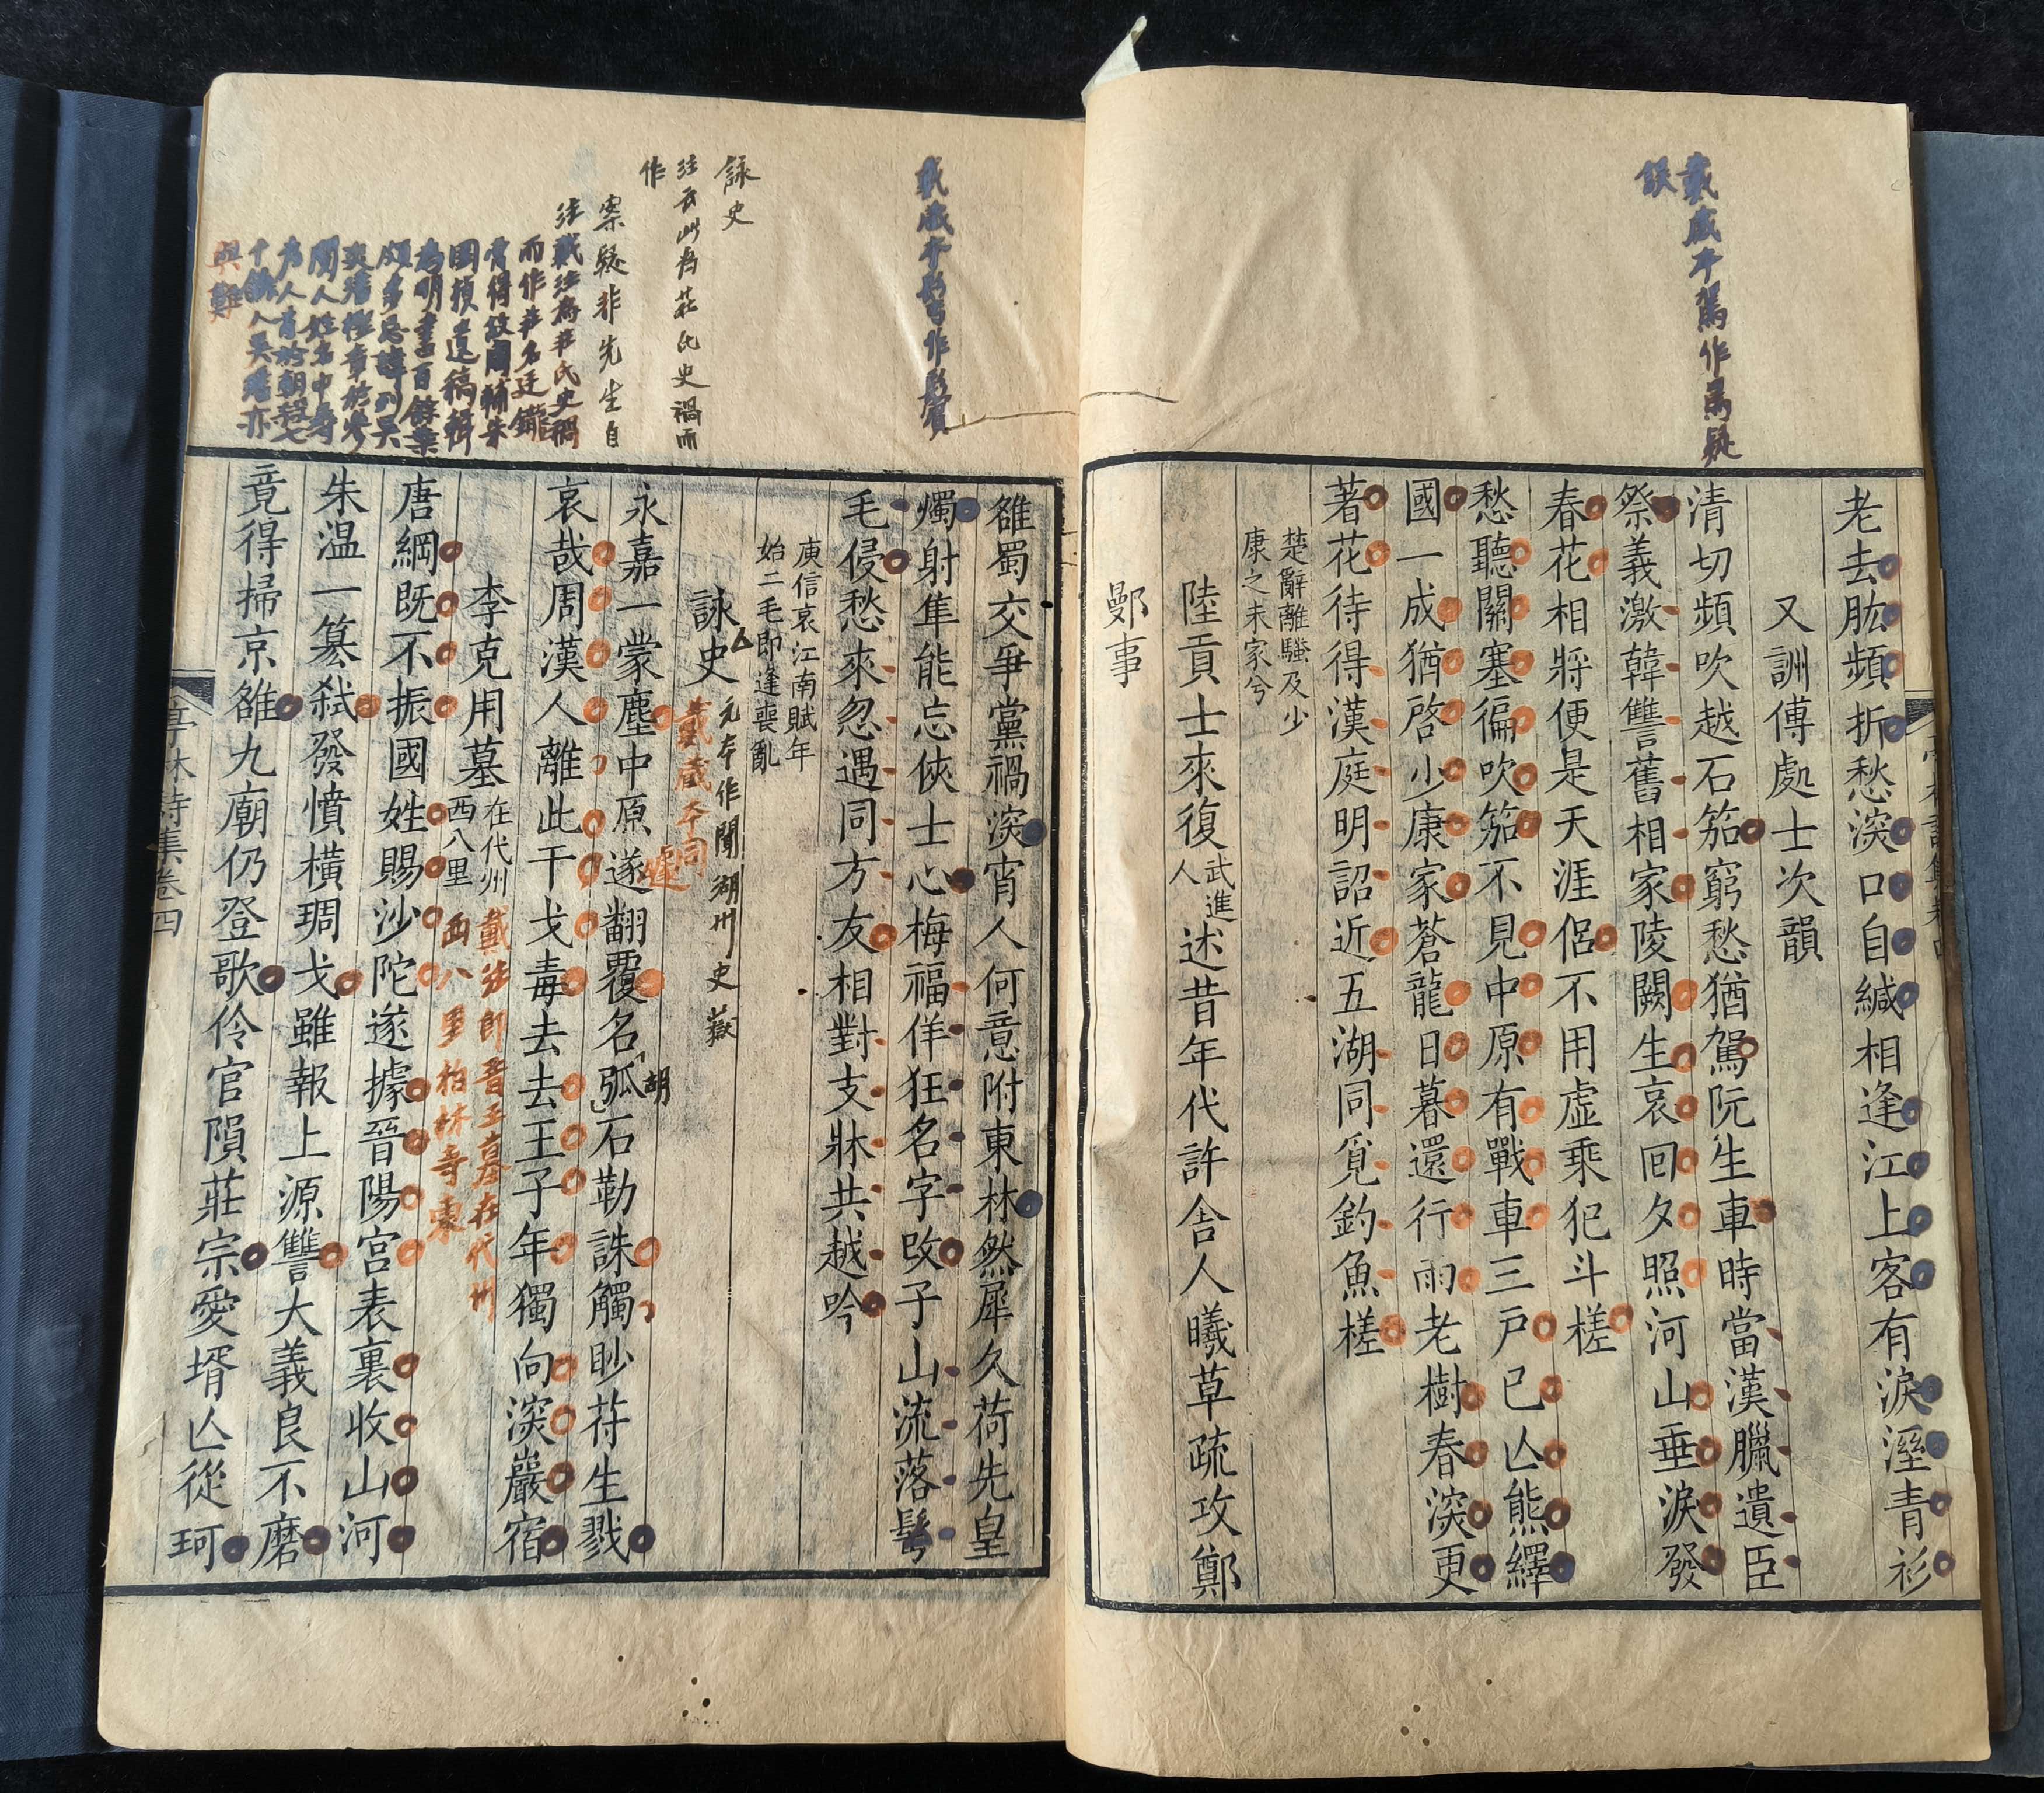 戴藏本駕作罵疑
誤
老去肱頻折愁深口自緘相逢江上客有淚溼青衫
又詶傅處士次韻
清切頻吹越石笳窮愁猶駕阮生車時當漢臘遺臣
祭義激韓讐舊相家陵闕生哀回夕照河山垂淚發
春花相將便是天涯侶不用虛乘犯斗槎
愁聽關塞徧吹笳不見中原有戰車三戸已亾熊繹
國一成猶啓少康家蒼龍日暮還行雨老樹春深更
著花待得漢庭明詔近五湖同覓釣魚槎
楚辭離騷及少
康之未家兮
陸貢士來復武進
人述昔年代許舍人曦草疏攻鄭
鄤事
戴藏本髩作鬢
雒蜀交爭黨禍深宵人何意附東林然犀久荷先皇
燭射隼能忘俠士心梅福佯狂名字改子山流落髩
毛侵愁來忽遇同方友相對支牀共越吟
庾信哀江南賦年
始二毛即逢喪亂
詠史
注云此為莊氏史禍而
作
案疑非先生自
注戴注為莊氏史禍
而作莊名廷鑨
胄得故閣輔朱
國楨遺稿輯
為明書百餘
頗多忌諱列吳
閱人姓名中
為人首於朝
與難
詠史
元本作聞湖州史獄
戴藏本同
永嘉一蒙塵中原遂翻覆名弧石勒誅觸眇苻生戮
遽
胡
哀哉周漢人離此干戈毒去去王子年獨向深巖宿
李克用墓在代州
西八里
戴注郎晉王墓在代州
西八里柏林寺東
唐綱既不振國姓賜沙陀遂據晉陽宮表裏收山河
朱温一篡弒發憤橫琱戈雖報上源讐大義良不磨
竟得掃京雒九廟仍登歌伶官隕莊宗愛壻亾從珂
亭林詩集卷四